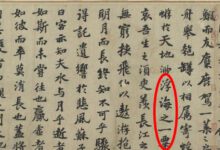 而友麋鹿駕一葉
匏樽以相屬寄蜉
蝣於天地渺浮海之一粟
哀吾生之須臾羨長江之
無窮挾飛仙以遨遊抱
明月而長終知不可乎驟
得託遺響於悲風蘇子
曰客亦知夫水與月乎逝者
如斯而未嘗往也盈虛者
如彼而卒莫消長也蓋